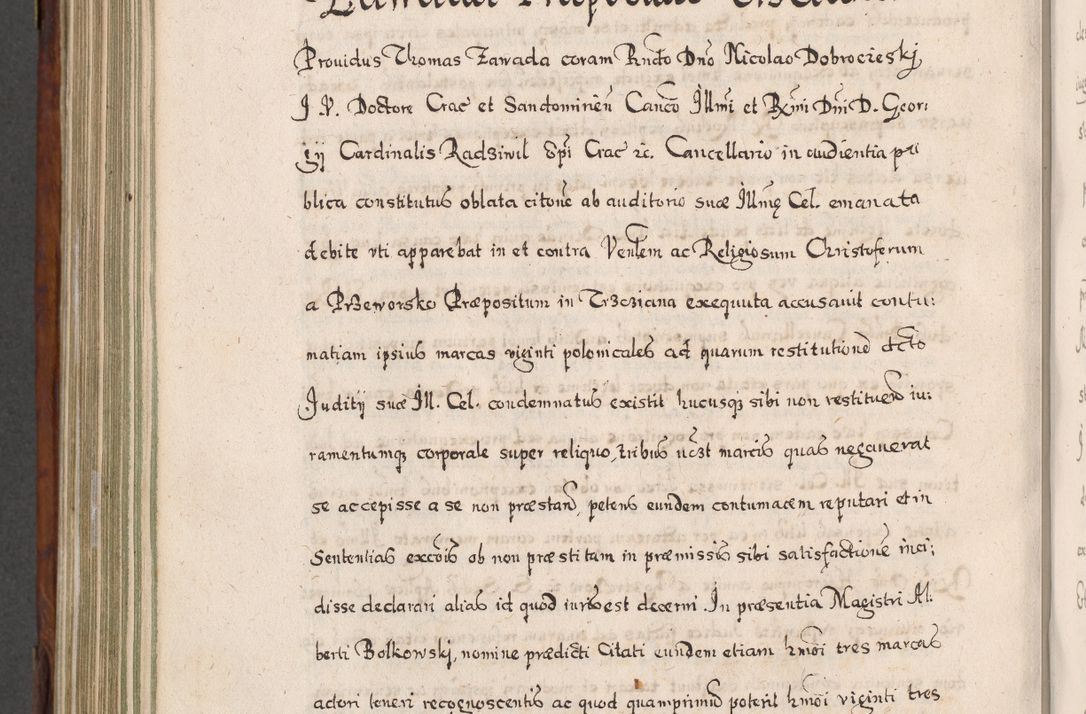 Prouidus Thomas Zawada coram Rndo Dno Nicolao Dobrocieskj
J. V. Doctore Crac et Sandomirien Canco Illmi et Rxmi Dni D. Geor:
gij Cardinalis Radziwil Epi Crac rc. Cancellario in audientia pu
blica constitutus oblata citone ab auditorio suæ Illmę Cel. emanata
debite vti apparebat in et contra Venlem ac Religiosum Christoferum
a Przeworsko Præpositum in Trzciana exequuta accusauit contu:
matiam ipsius marcas viginti polonicales ad quarum restitutione dcto
Juditij suæ Ill. Cel. condemnatus existit hucusqz sibi non restituen iu:
ramentumqz corporale super reliquo tribus uczt marcis quas negauerat
se accepisse a se non præstan, petens eundem contumacem reputari et in
Sententias excois ob non præstitam in præmissis sibi satisfactione inci:
disse declarari alias id quod iuris est decerni. In præsentia Magistri Al:
berti Bolkowski, nomine prædicti Citati eundem etiam hmoi tres marcas
actori teneri recognoscentis ac quod quamprimu poterit hmoi viginti tres